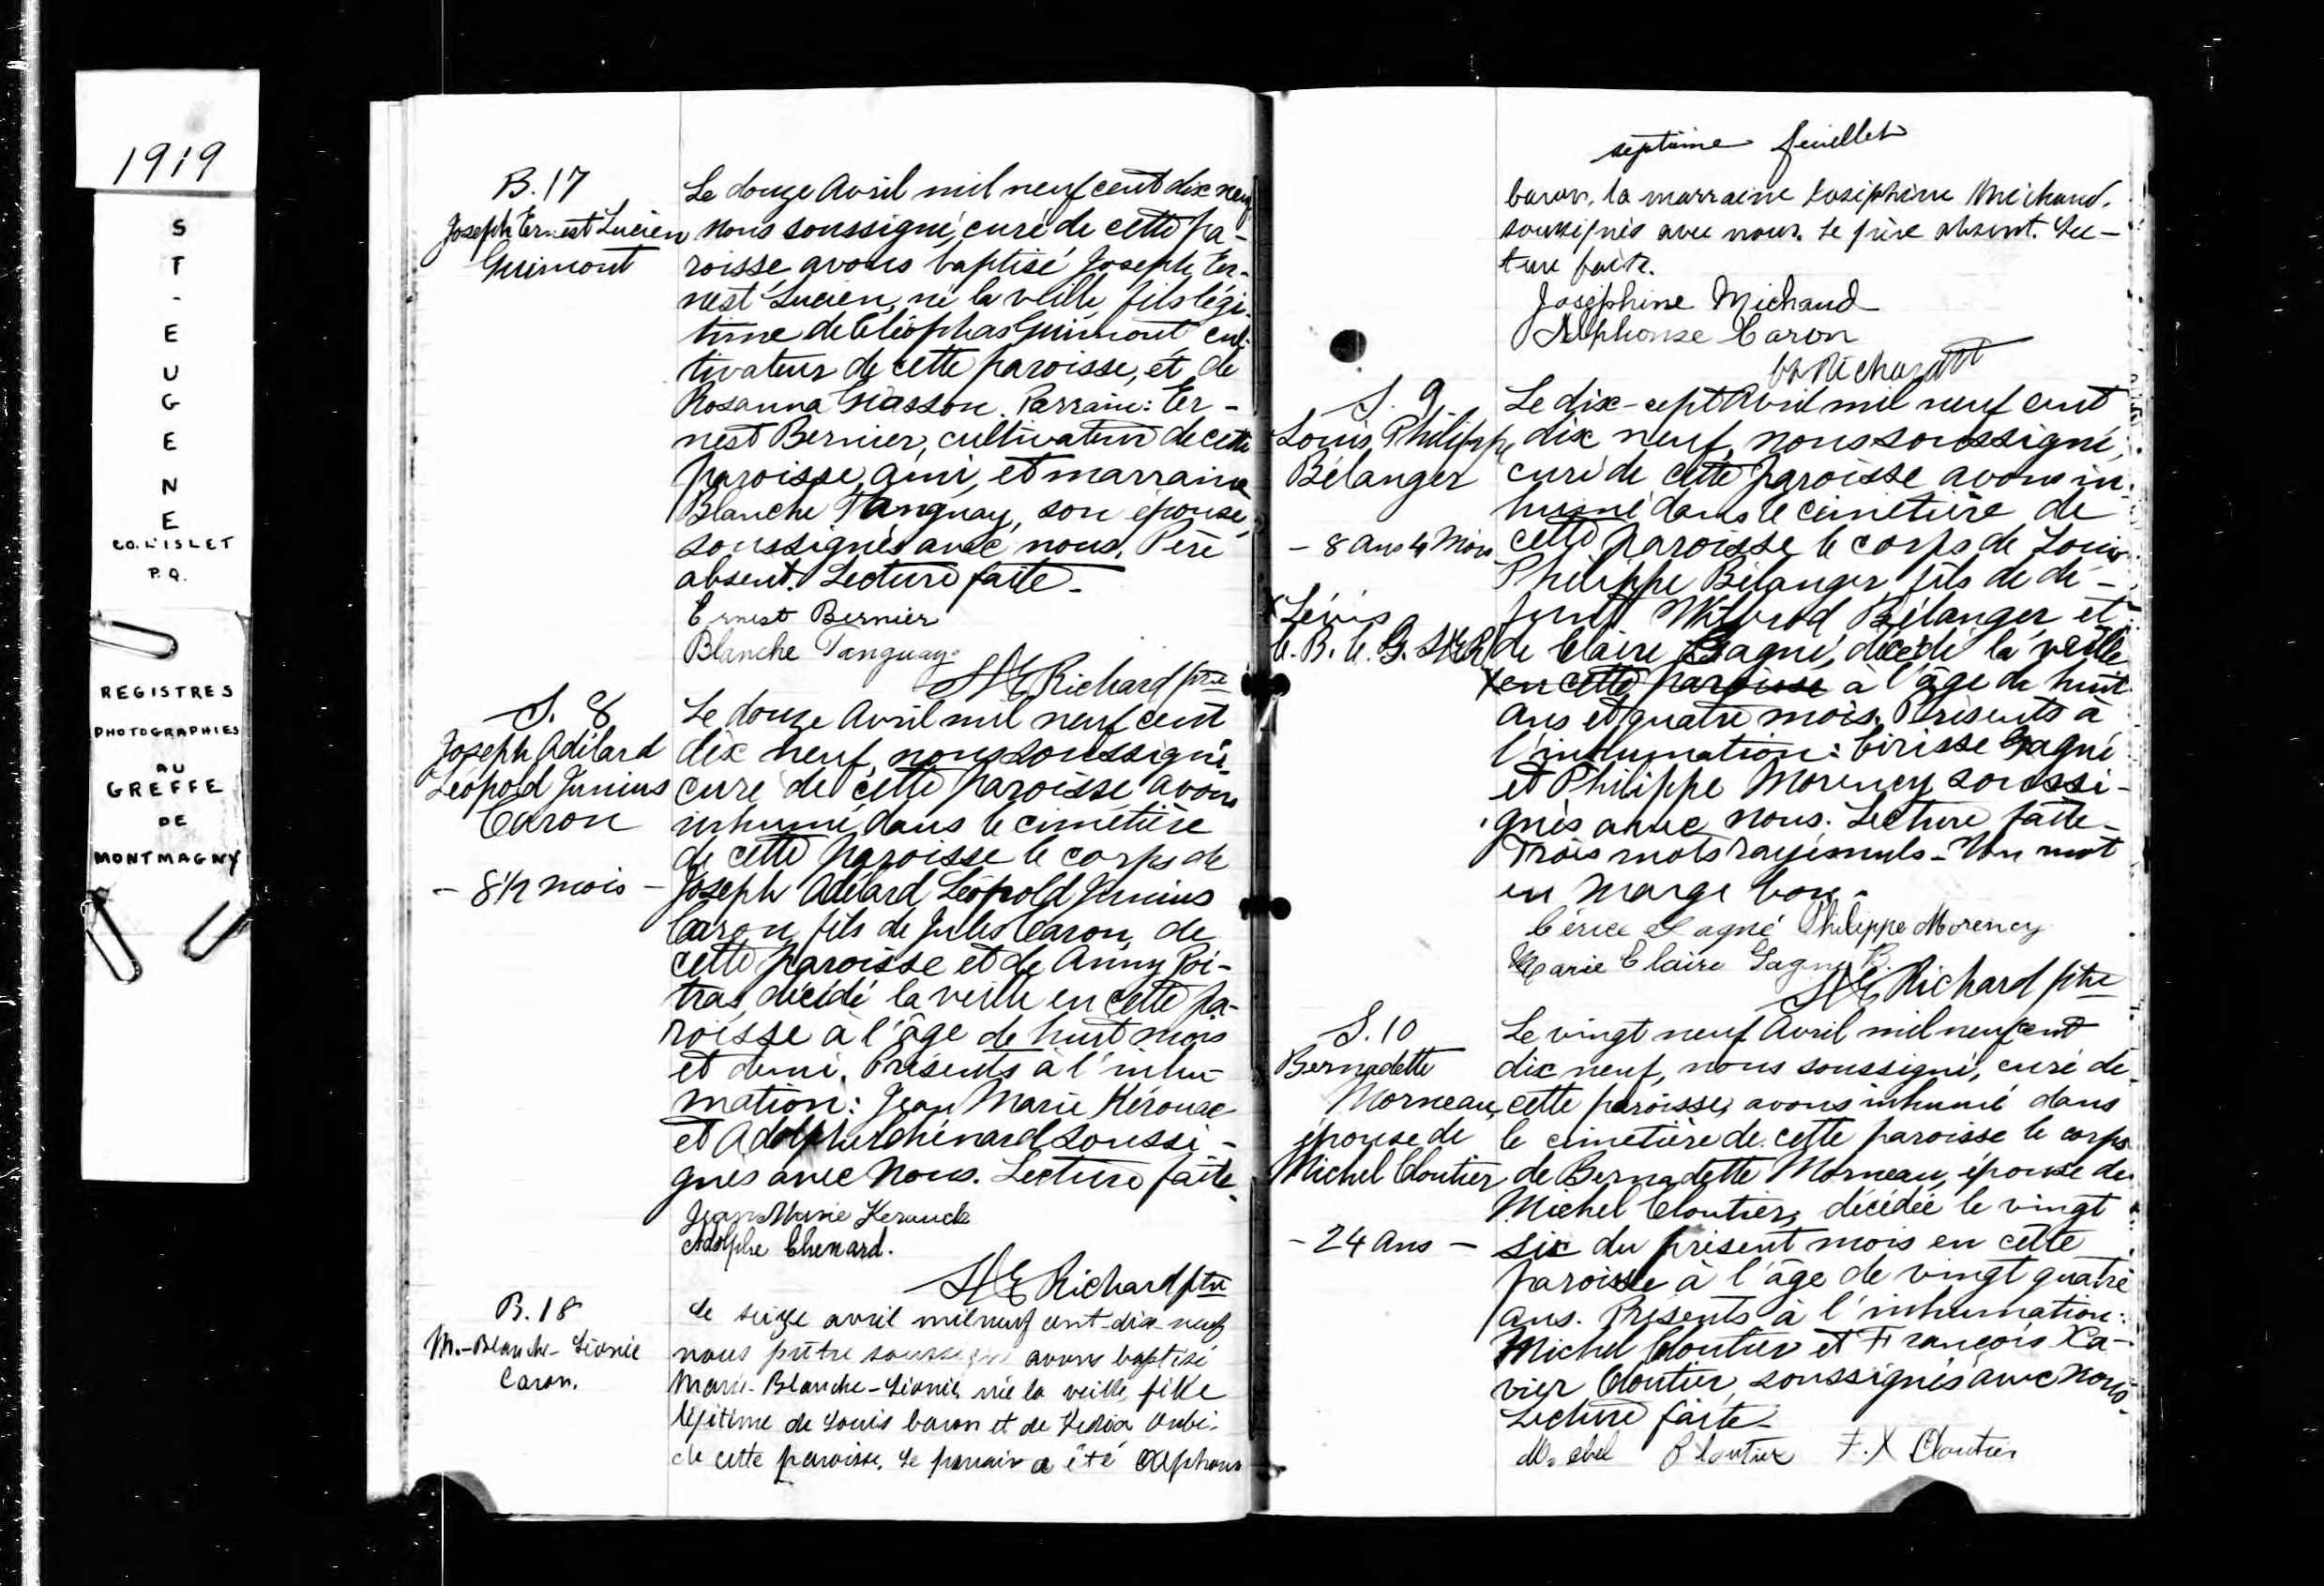 1919
ST-EUGENE
CO. L'ISLET
P.Q.
REGISTRES
PHOTOGRAPHIES
AU
GREFFE
DE
MONTMAGNY
B.17
Joseph Ernest Lucien
Guimont
Le douze Avril mil neuf cent dix neuf
nous soussigné, curé de cette pa-
roisse avons baptisé Joseph Er-
nest Lucien, né la veille, fils légi-
time de Cléophas Guimont, cul-
tivateur de cette paroisse, et de
Rosanna Giasson. Parrain: Er-
nest Bernier, cultivateur de cette
paroisse, ami, et marraine
Blanche Tanguay, son épouse,
soussignés avec nous. Père
absent. Lecture faite.
Ernest Bernier
Blanche Tanguay
Richard ptre
S. 8
Joseph Adélard
Léopold Junius
Caron
- 8 1/2 mois -
Le douze Avril mil neuf cent
dix neuf, nous soussigné,
curé de cette paroisse avons
inhumé dans le cimetière
de cette paroisse le corps de
Joseph Adélard Léopold Junius
Caron, fils de Jules Caron, de
cette paroisse et de Anny Poi-
tras, décédé la veille en cette pa-
roisse à l'âge de huit mois
et demi. Présents à l'inhu-
mation: Jean Marie Kérouac
et Adolphe Chénard soussi-
gnés avec nous. Lecture faite.
Jean Marie Kerouack
Adolphe Chenard.
Richard ptre
B.18
M.-Blanche-Léonie
Caron.
Le seize avril mil neuf cent-dix-neuf
nous prêtre soussigné avons baptisé
Marie-Blanche-Léonie, née la veille, fille
légitime de Louis Caron et de
de cette paroisse. Le parrain a été Alphonse
septième feuillet
Caron, la marraine Joséphine Michaud.
soussignés avec nous. Le père absent. Lec-
ture faite.
Joséphine Michaud
Alphonse Caron
Richard
S. 9
Louis Philippe
Bélanger
- 8 ans 4 mois
X Lévis
C. B. C. G.
Le dix-sept Avril mil neuf cent
dix neuf, nous soussigné,
curé de cette paroisse avons in-
humé dans le cimetière de
cette paroisse le corps de Louis
Philippe Bélanger, fils de dé-
funt Wilbrod Bélanger et
de Claire Gagné, décédé la veille
X en cette paroisse à l'âge de huit
ans et quatre mois. Présents à
l'inhumation: Cirisse Gagné
et Philippe Morency soussi-
gnés avec nous. Lecture faite.
Trois mots rayés nuls - Un mot
en marge bon.
Gagné Philippe Morency
Marie Claire Gagné B.
Richard ptre
S.10
Bernadette
Morneau,
épouse de
Michel Cloutier
- 24 ans -
Le vingt neuf Avril mil neuf cent
dix neuf, nous soussigné, curé de
cette paroisse, avons inhumé dans
le cimetière de cette paroisse le corps
de Bernadette Morneau, épouse de
Michel Cloutier, décédée le vingt
six du présent mois en cette
paroisse à l'âge de vingt quatre
ans. Présents à l'inhumation:
Michel Cloutier et François Xa-
vier Cloutier, soussignés avec nous.
Lecture faite.
Michel Cloutier F.X Cloutier